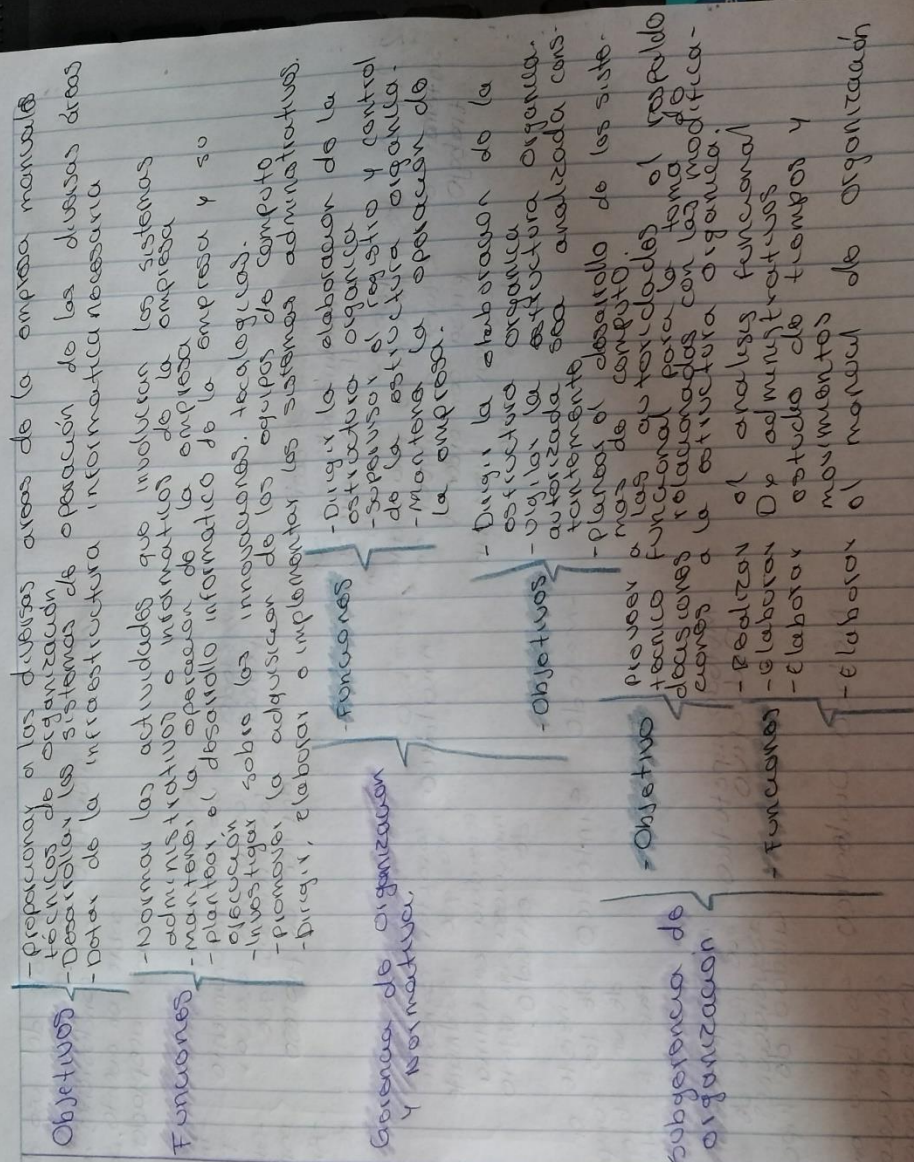 Objetivos
- proporcionar a las diversas areas de la empresa manuales
técnicos de organización
- Desarrollar los sistemas de operación de las diversas áreas
- Dotar de la infraestructura informatica necesaria
Funciones
- Normar las actividades que involucran los sistemas
administrativos e informaticos de la empresa
- mantener la operacion de la empresa
- plantear el desarrollo informatico de la empresa y su
ejecución
- Investigar sobre las innovaciones tecalogicas.
- promover la adquisicion de los equipos de computo
- Dirigir, elaborar e implementar los sistemas administrativos.
Gerencia de organizacion
y Normativa.
- Funciones
- Dirigir la elaboracion de la
estructura organica
- supervisar el registro y control
de la estructura organica.
- Mantener la operacion de
la empresa.
- Objetivos
- Dirigir la elaboracion de la
estructura organica
- vigilar la estructura organica
autorizada sea analizada cons-
tantemente
- planear el desarrollo de los siste-
mas de computo
Subgerencia de
organización
- Objetivo
proveer a las autoridades el respaldo
tecnico funcional para la toma de
decisiones relacionadas con las modifica-
ciones a la estructura organica
- Funciones
- Realizar el analisis funcional
- Elaborar Dx administrativos
- Elaborar estudio de tiempos y
movimientos
- Elaborar el manual de organización